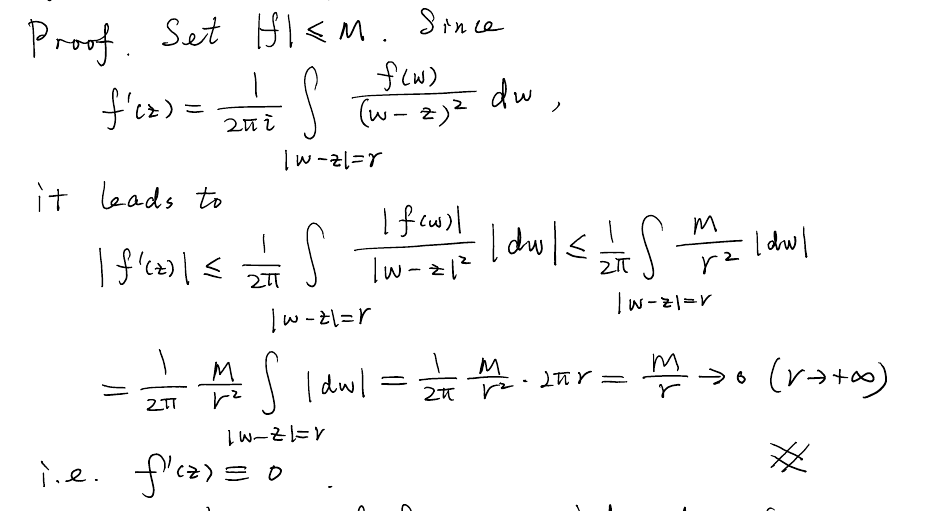 Proof. Set |f| ≤ M. Since
f'(z) = \frac{1}{2πi} ∫_{|w-z|=r} \frac{f(w)}{(w-z)^2} dw,
it leads to
|f'(z)| ≤ \frac{1}{2π} ∫_{|w-z|=r} \frac{|f(w)|}{|w-z|^2} |dw| ≤ \frac{1}{2π} ∫_{|w-z|=r} \frac{M}{r^2} |dw|
= \frac{1}{2π} \frac{M}{r^2} ∫_{|w-z|=r} |dw| = \frac{1}{2π} \frac{M}{r^2} · 2πr = \frac{M}{r} → 0 (r→+∞)
i.e. f'(z) ≡ 0.